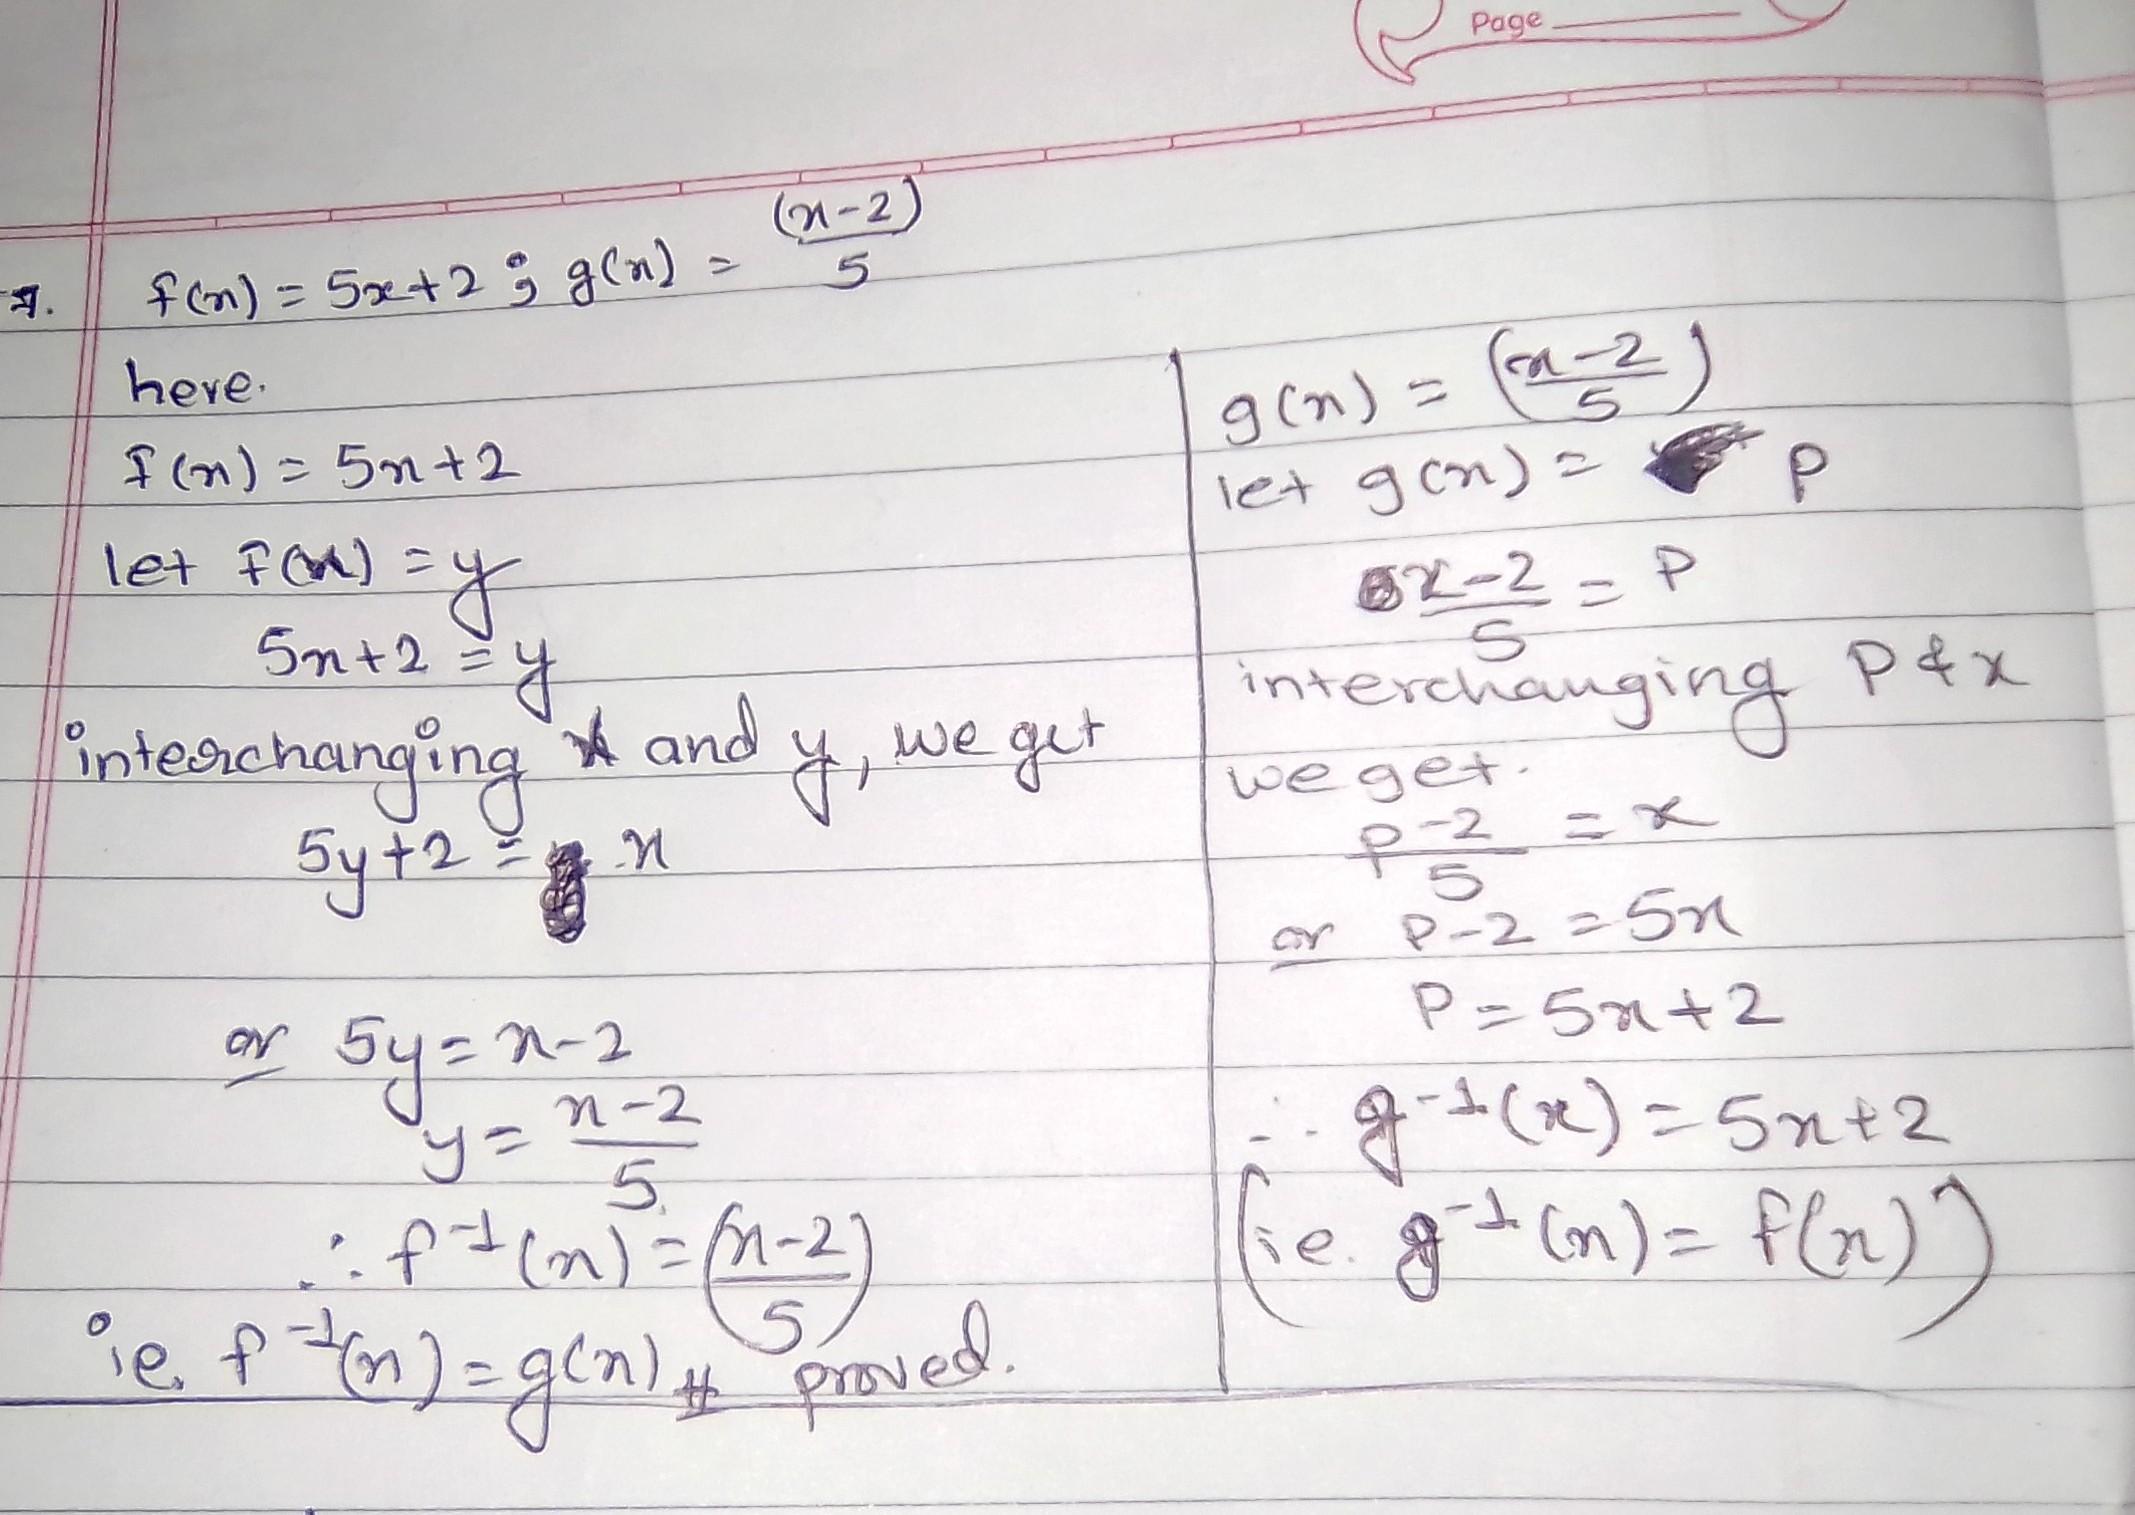 Page
f(x) = 5x+2 ; g(x) = (x-2)/5
here.
f(x) = 5x+2
let f(x) = y
5x+2 = y
interchanging x and y, we get
5y+2 = x
or 5y = x-2
y = x-2/5
∴ f⁻¹(x) = (x-2/5)
ie. f⁻¹(x) = g(x) # proved.
g(x) = (x-2/5)
let g(x) = P
x-2/5 = P
interchanging P & x
we get.
P-2/5 = x
or P-2 = 5x
P = 5x+2
∴ g⁻¹(x) = 5x+2
(ie. g⁻¹(x) = f(x))